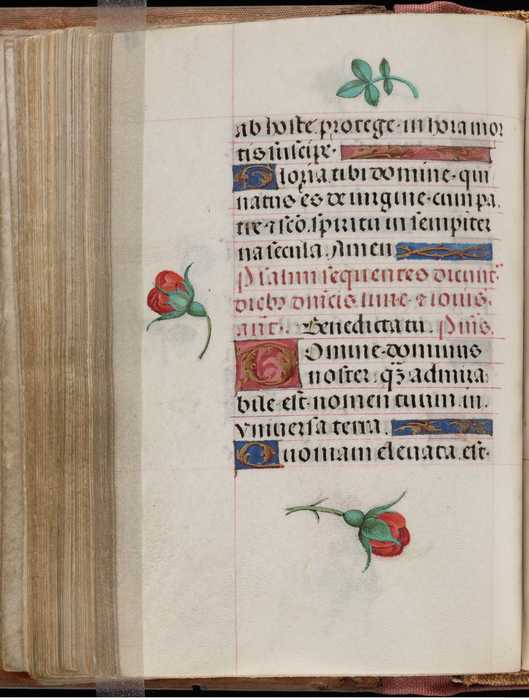 ab hoste protege·in hora mor
tis suscipe·
Gloria tibi domine·qui
natus es de uirgine·cum pa
tre ⁊ sc̃o spiritu in sempiter
na secula. Amen.
Psalmi sequentes dicunt̃
dieb9 dñicis lune·⁊ iouis.
añt. Benedicta tu. Psm̃s.
Domine·dominus
noster qȝ admira
bile·est·nomen tuum in.
vniuersa terra.
Quoniam eleuata est·